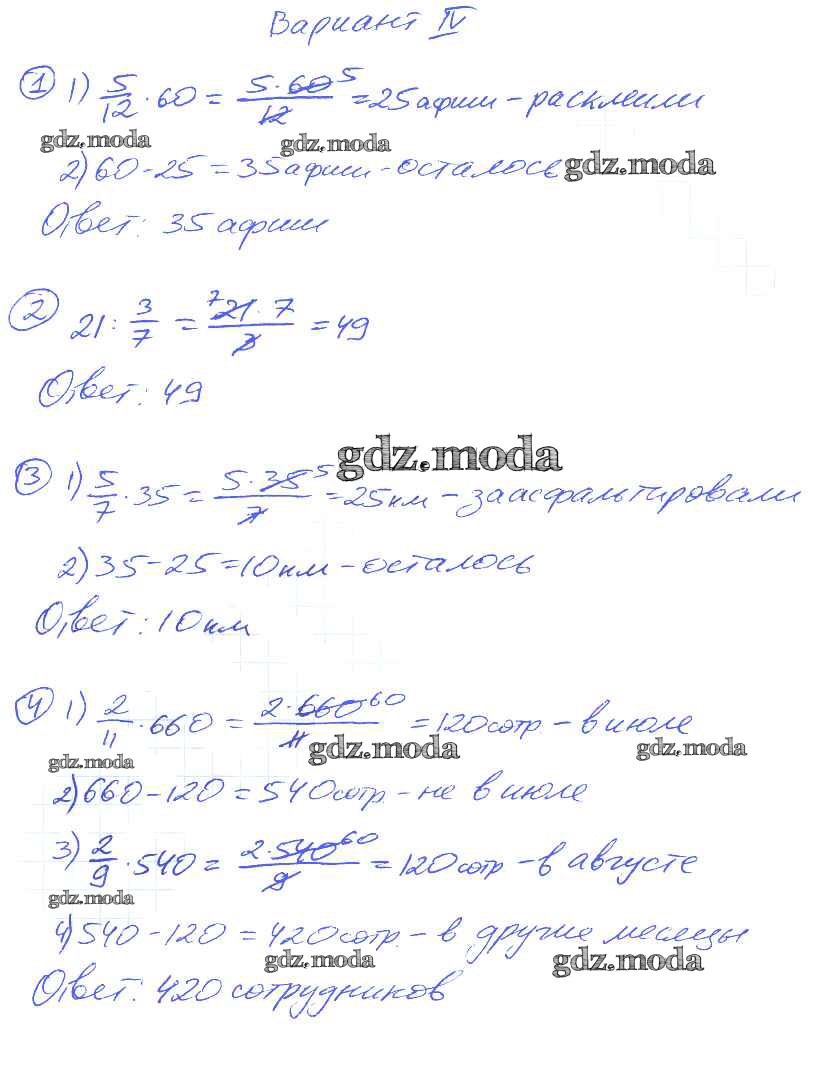 Вариант IV
① 1) 5/12 · 60 = 5·60 5/12 = 25 афиш - расклеили
gdz.moda gdz.moda
2) 60 - 25 = 35 афиш - осталось gdz.moda
Ответ: 35 афиш
② 21 : 3/7 = 7 21·7/3 = 49
Ответ: 49
gdz.moda
③ 1) 5/7 · 35 = 5·35 5/7 = 25 км - заасфальтировали
2) 35 - 25 = 10 км - осталось
Ответ: 10 км
④ 1) 2/11 · 660 = 2·660 60/11 = 120 сотр - в июле
gdz.moda gdz.moda gdz.moda
2) 660 - 120 = 540 сотр. - не в июле
3) 2/9 · 540 = 2·540 60/9 = 120 сотр - в августе
gdz.moda
4) 540 - 120 = 420 сотр. - в другие месяцы
gdz.moda gdz.moda
Ответ: 420 сотрудников